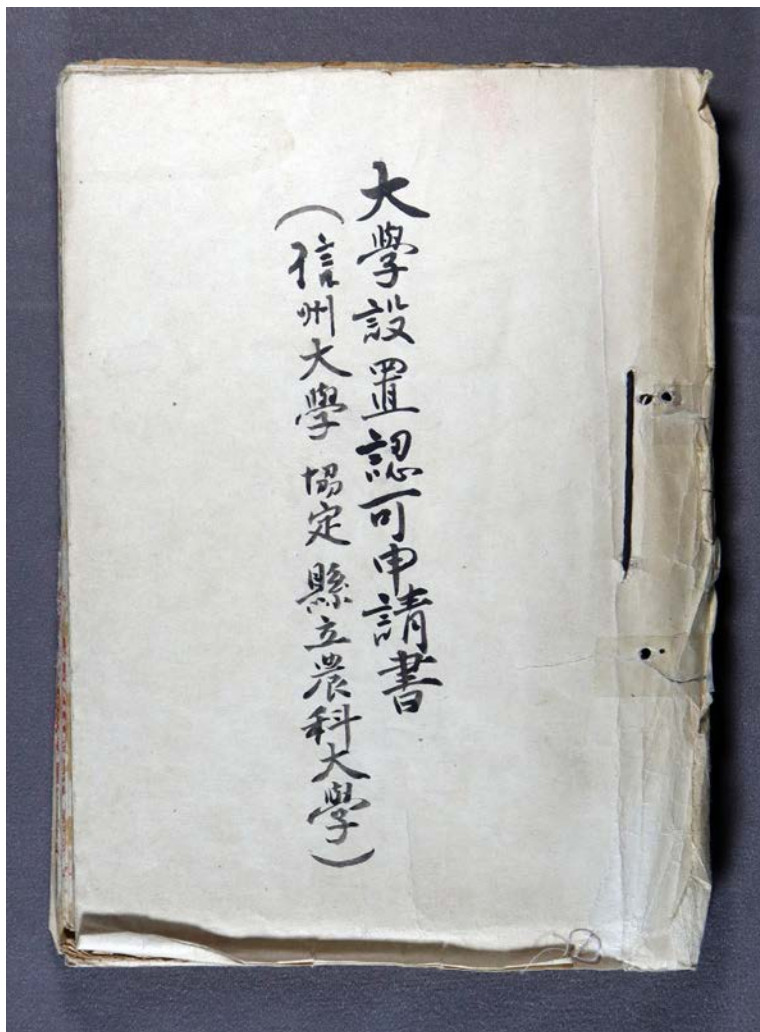 大學設置認可申請書
（信州大學 協定 縣立農科大學）